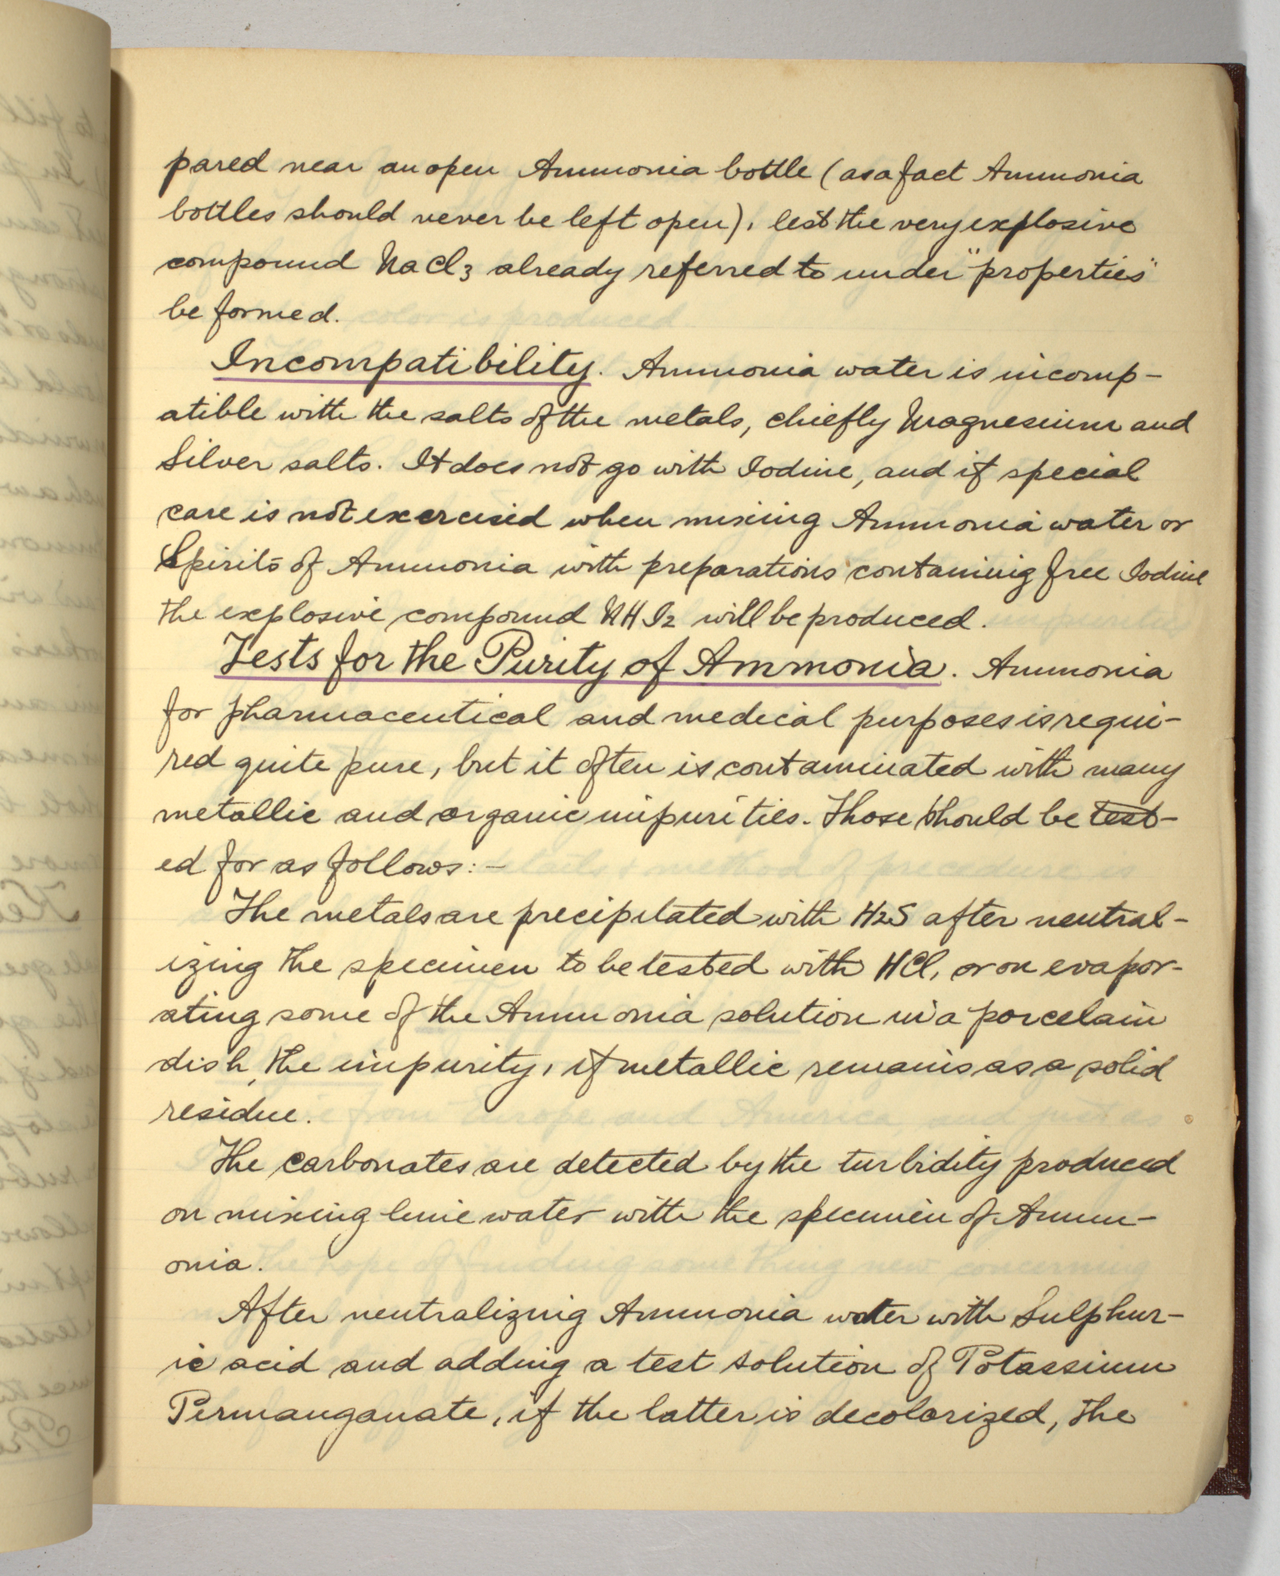 pared near an open Ammonia bottle (as a fact Ammonia
bottles should never be left open), lest the very explosive
compound NaCl3 already referred to under "properties"
be formed.
Incompatibility. Ammonia water is incomp-
atible with the salts of the metals, chiefly Magnesium and
Silver salts. It does not go with Iodine, and if special
care is not exercised when mixing Ammonia water or
Spirits of Ammonia with preparations containing free Iodine
the explosive compound NHI2 will be produced.
Tests for the Purity of Ammonia. Ammonia
for pharmaceutical and medical purposes is requi-
red quite pure, but it often is contaminated with many
metallic and organic impurities. Those should be test-
ed for as follows:-
The metals are precipitated with H2S after neutral-
izing the specimen to be tested with HCl, or on evapor-
ating some of the Ammonia solution in a porcelain
dish, the impurity, if metallic remains as a solid
residue.
The carbonates are detected by the turbidity produced
on mixing lime water with the specimen of Amm-
onia.
After neutralizing Ammonia water with Sulphur-
ic acid and adding a test solution of Potassium
Permanganate, if the latter is decolorized, the